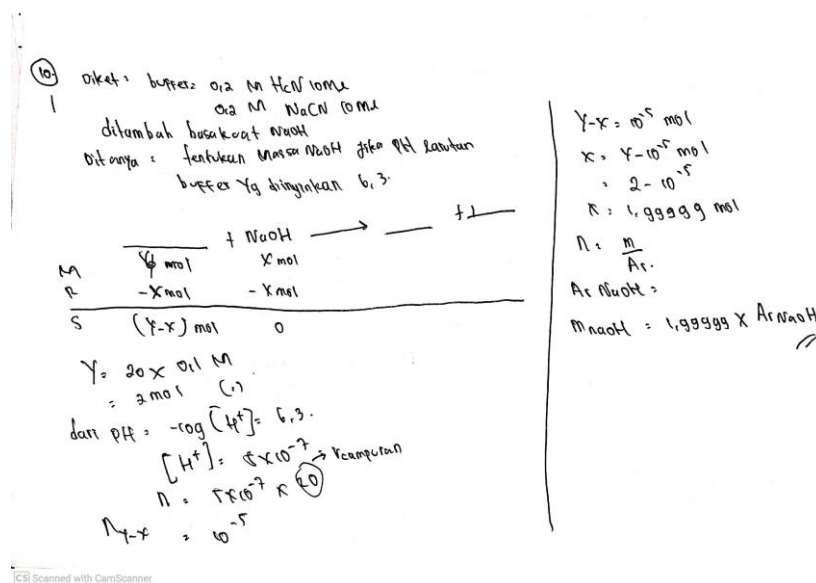 10) Diket : buffer : 0,2 M HCN 10 mL
0,2 M NaCN 10 mL
ditambah basa kuat NaOH
Ditanya : tentukan Massa NaOH jika PH larutan
buffer Yg diinginkan 6,3.
+ NaOH → +
M Y mol X mol
R -X mol -X mol
S (Y-X) mol 0
Y = 20 x 0,1 M
= 2 mol (.)
dari PH = -log [H+] = 6,3.
[H+] = 5x10-7 → Vcampuran
n = 5x10-7 x 20
n y-x = 10-5
Y-X = 10-5 mol
X = Y-10-5 mol
= 2-10-5
X = 1,99999 mol
n = m
Ar.
Ar NaOH =
m NaOH = 1,99999 X Ar NaOH
CS Scanned with CamScanner